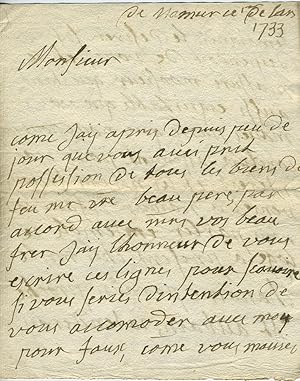 de namur ce de lan
1733
Monsieur
come Jay apris depuis peu de
jour que vous avis prist
possission de tous les biens de
feu mr vre beau pere, par
accord avec mrs vos beau
frer Jay lhonneur de vous
escrire ces lignes pour scavoire
si vous series dintention de
vous accomoder avec moy
pour faux, come vous